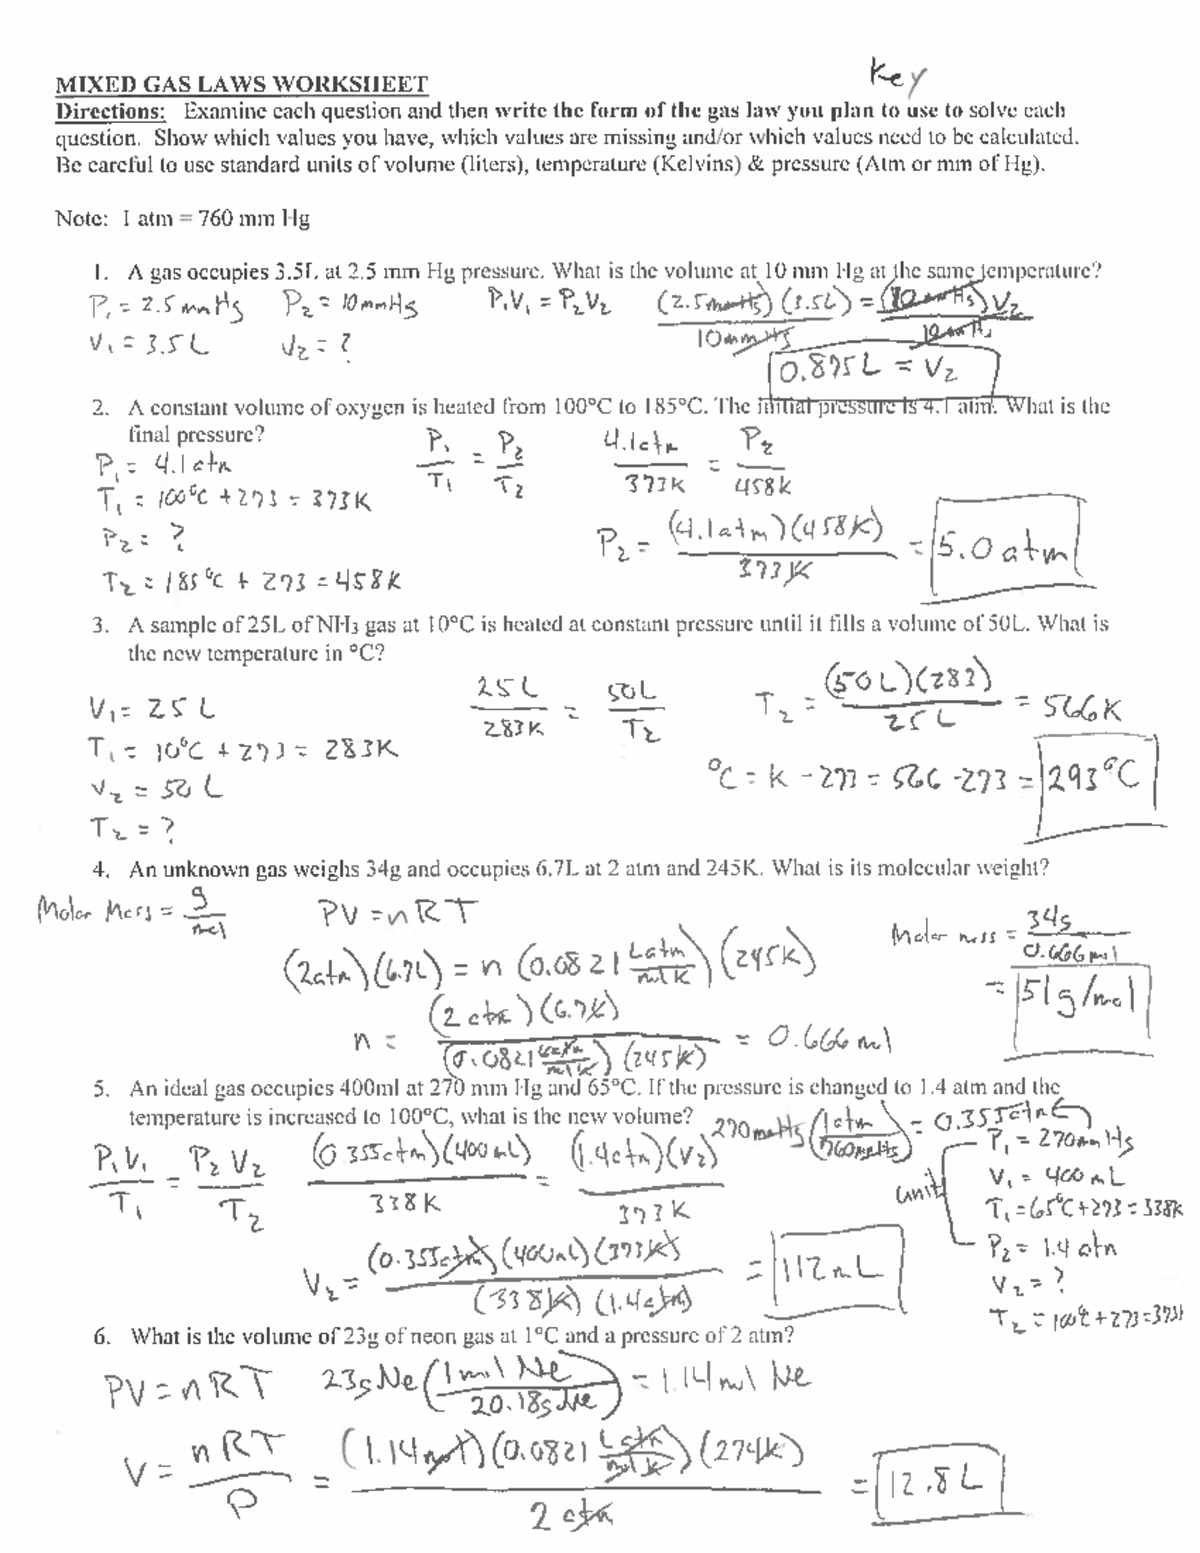 Key
MIXED GAS LAWS WORKSHEET
Directions: Examine each question and then write the form of the gas law you plan to use to solve each
question. Show which values you have, which values are missing and/or which values need to be calculated.
Be careful to use standard units of volume (liters), temperature (Kelvins) & pressure (Atm or mm of Hg).
Note: 1 atm = 760 mm Hg
1. A gas occupies 3.5L at 2.5 mm Hg pressure. What is the volume at 10 mm Hg at the same temperature?
P₁ = 2.5 mmHg P₂ = 10mmHg P₁V₁ = P₂V₂ (2.5mmHg)(3.5L) = (10mmHg)V₂
V₁ = 3.5L V₂ = ? 10mmHg 10mmHg
0.875L = V₂
2. A constant volume of oxygen is heated from 100°C to 185°C. The initial pressure is 4.1 atm. What is the
final pressure? P₁ = P₂ 4.1atm = P₂
P₁ = 4.1atm T₁ T₂ 373K 458K
T₁ = 100°C + 273 = 373K
P₂ = ? P₂ = (4.1atm)(458K) = 5.0 atm
373K
T₂ = 185°C + 273 = 458K
3. A sample of 25L of NH₃ gas at 10°C is heated at constant pressure until it fills a volume of 50L. What is
the new temperature in °C?
V₁ = 25L 25L = 50L T₂ = (50L)(283) = 566K
283K T₂ 25L
T₁ = 10°C + 273 = 283K
V₂ = 50L °C = K - 273 = 566 - 273 = 293°C
T₂ = ?
4. An unknown gas weighs 34g and occupies 6.7L at 2 atm and 245K. What is its molecular weight?
Molar Mass = g PV = nRT Molar mass = 34g
mol 0.666mol
(2atm)(6.7L) = n (0.0821 L atm)(245K) = 51g/mol
mol K
n = (2atm)(6.7L) = 0.666mol
(0.0821 Latm)(245K)
mol K
5. An ideal gas occupies 400ml at 270 mm Hg and 65°C. If the pressure is changed to 1.4 atm and the
temperature is increased to 100°C, what is the new volume? 270mmHg (1atm) = 0.355atm
760mmHg
P₁V₁ = P₂V₂ (0.355atm)(400mL) = (1.4atm)(V₂) P₁ = 270mmHg
T₁ T₂ 338K 373K unit V₁ = 400mL
T₁ = 65°C + 273 = 338K
V₂ = (0.355atm)(400mL)(373K) = 112mL P₂ = 1.4atm
(338K)(1.4atm) V₂ = ?
T₂ = 100°C + 273 = 373K
6. What is the volume of 23g of neon gas at 1°C and a pressure of 2 atm?
PV = nRT 23gNe (1mol Ne) = 1.14mol Ne
20.18gNe
V = nRT = (1.14mol)(0.0821 Latm)(274K) = 12.8L
P mol K
2 atm